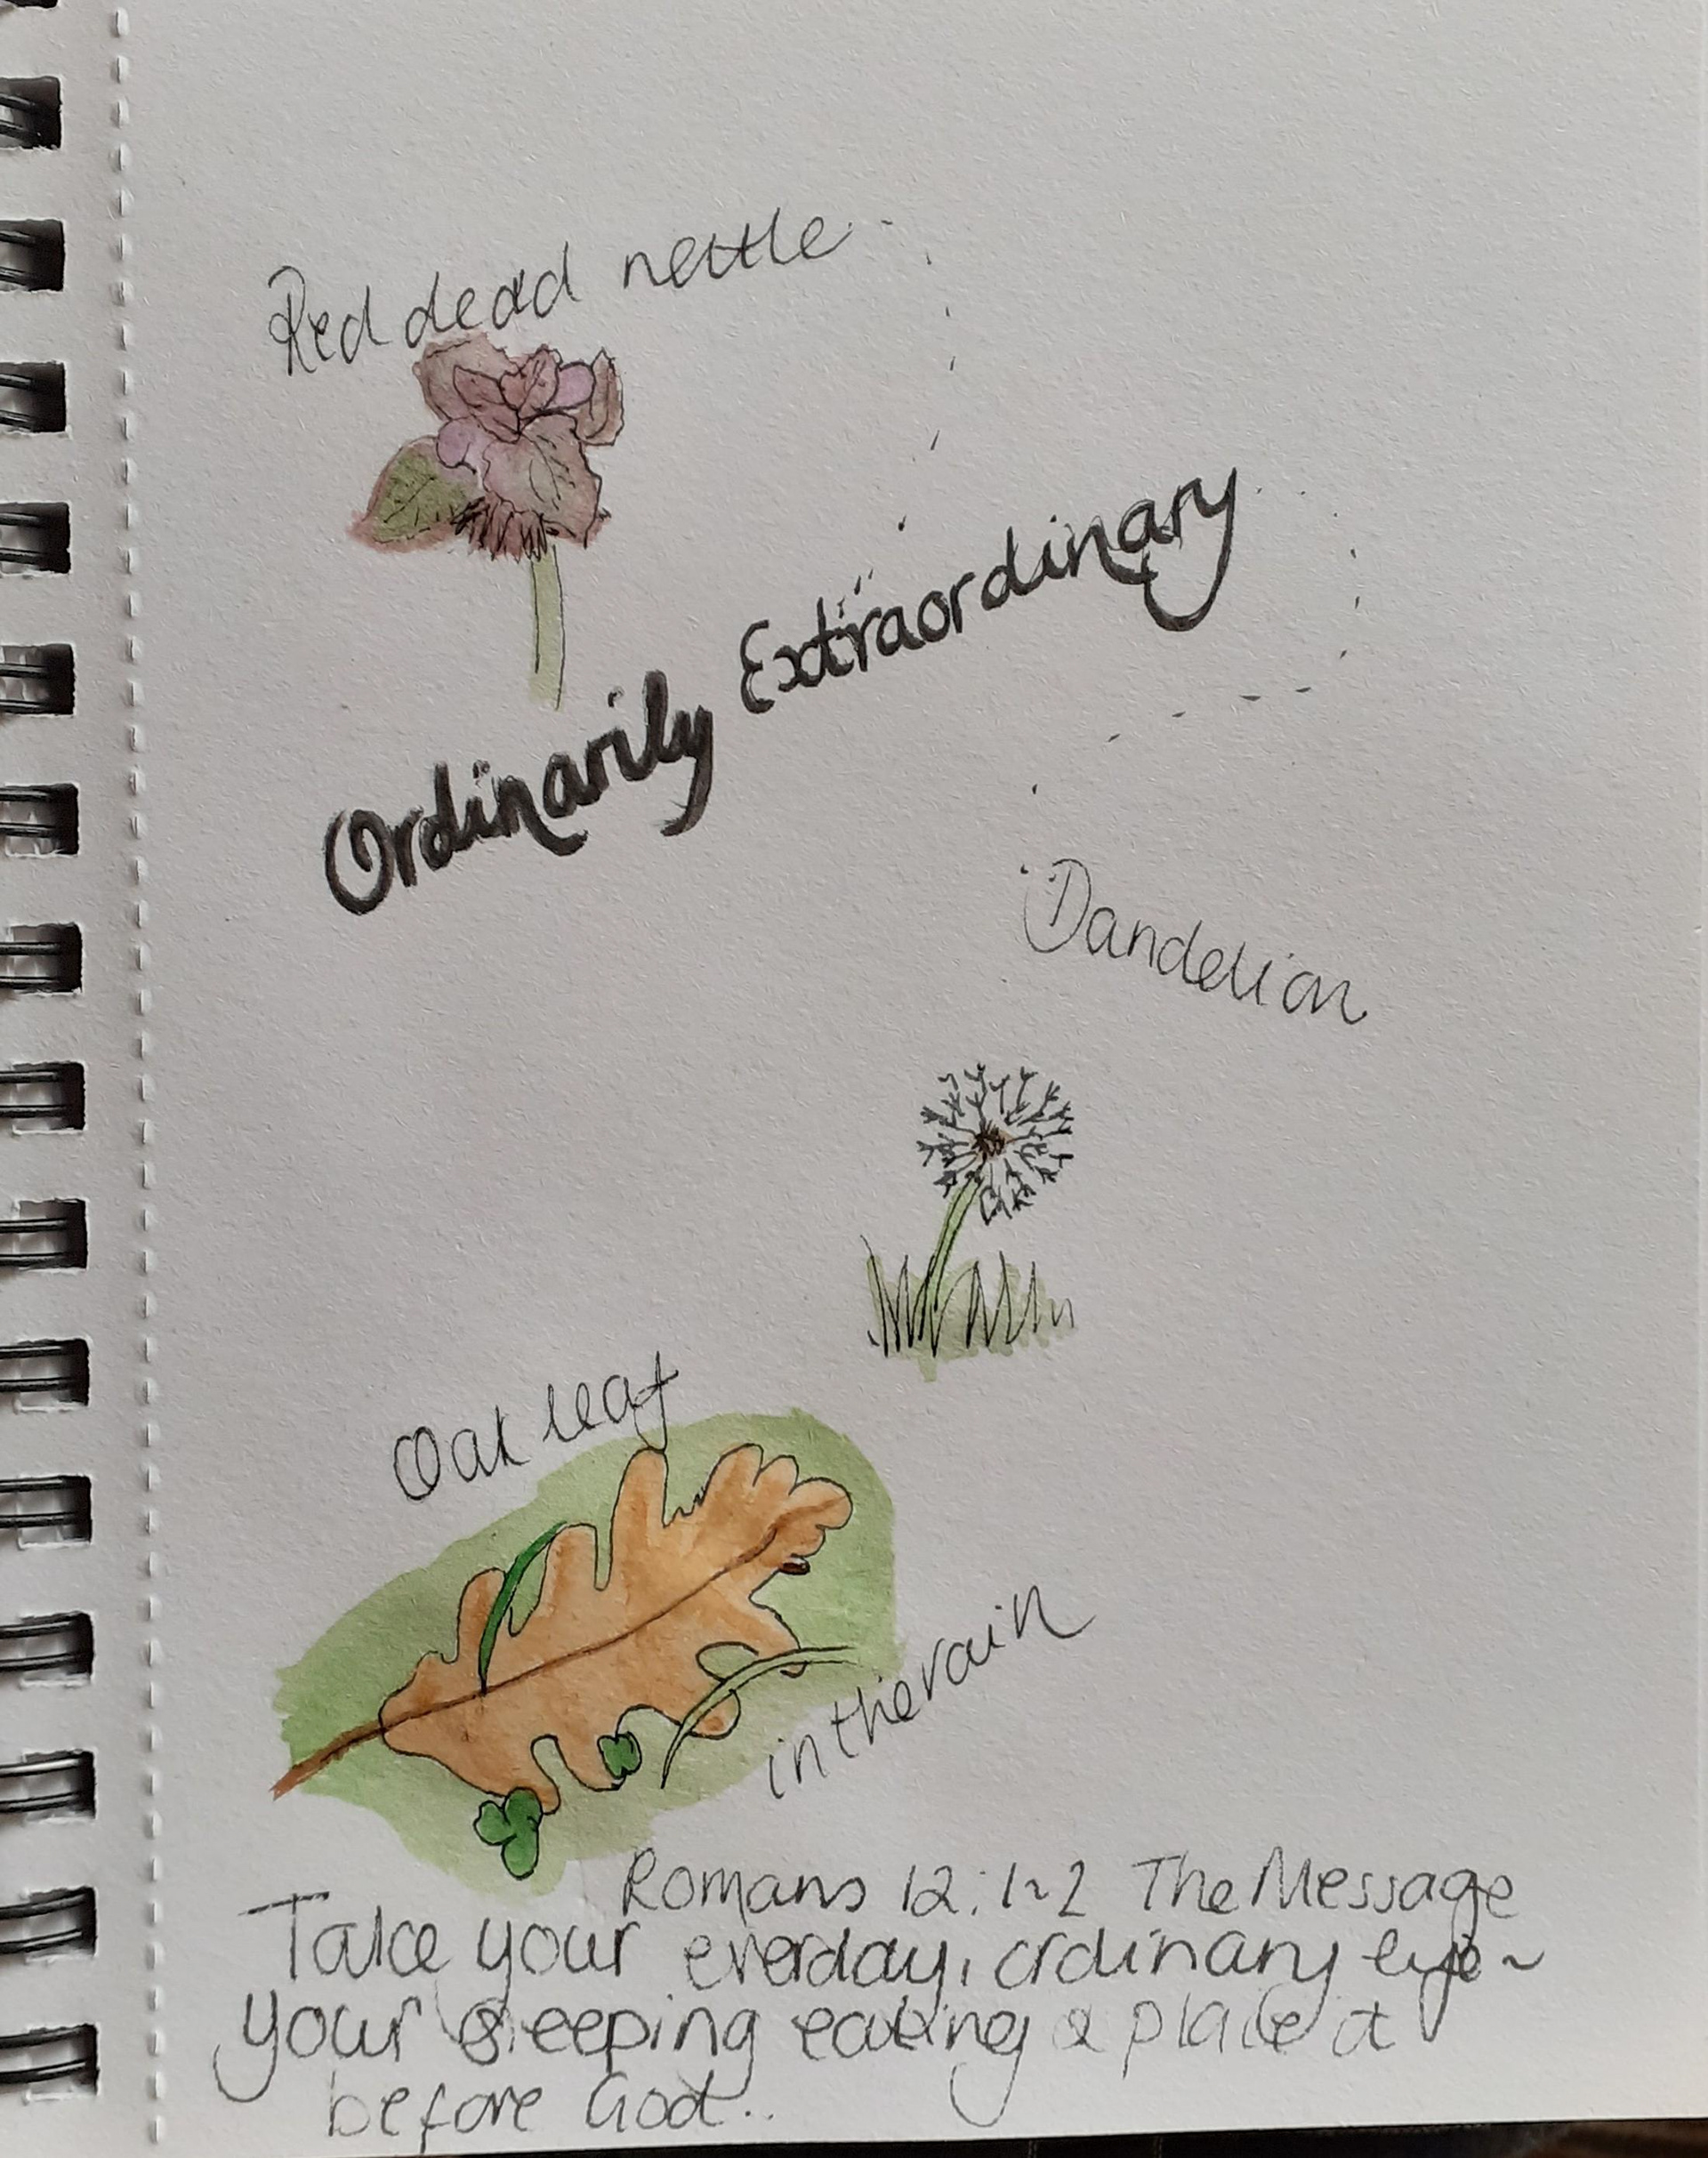 Red dead nettle
Ordinarily Extraordinary
Dandelion
Oak leaf
in the rain
Romans 12:1~2 The Message
Take your everday, ordinary life~
your sleeping eating & place it
before God..